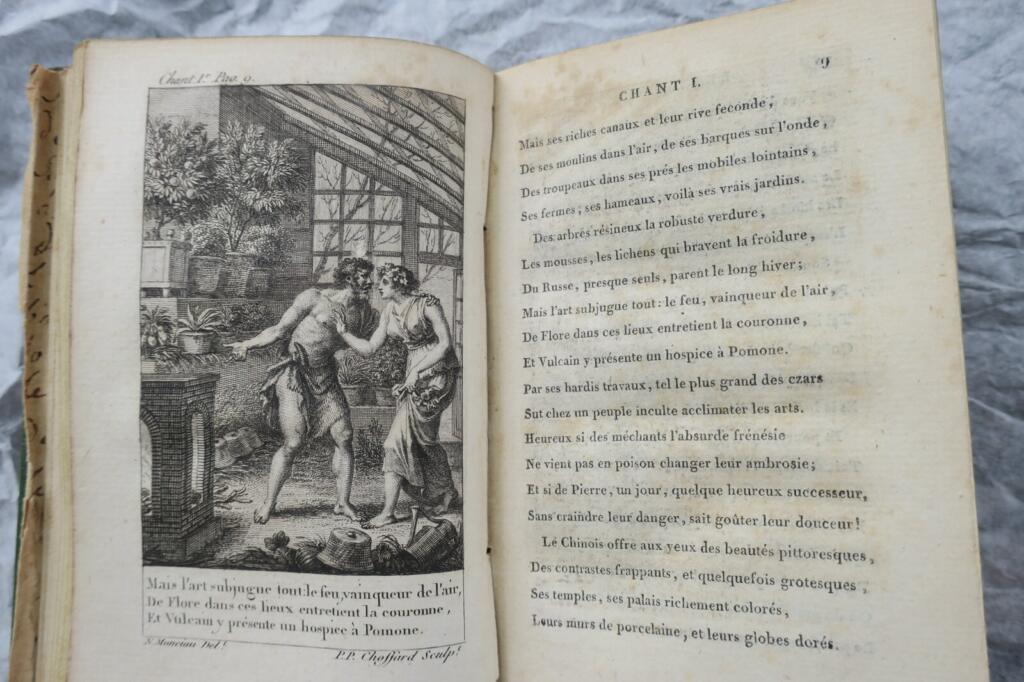 Chant I.er Pag. 9.
Mais l'art subjugue tout: le feu, vainqueur de l'air,
De Flore dans ces lieux entretient la couronne,
Et Vulcain y présente un hospice à Pomone.
N. Monciau Del.t
P.P. Choffard Sculp.t
CHANT I. 9
Mais ses riches canaux et leur rive feconde,
De ses moulins dans l'air, de ses barques sur l'onde,
Des troupeaux dans ses prés les mobiles lointains,
Ses fermes, ses hameaux, voilà ses vrais jardins.
Des arbres résineux la robuste verdure,
Les mousses, les lichens qui bravent la froidure,
Du Russe, presque seuls, parent le long hiver;
Mais l'art subjugue tout: le feu, vainqueur de l'air,
De Flore dans ces lieux entretient la couronne,
Et Vulcain y présente un hospice à Pomone.
Par ses hardis travaux, tel le plus grand des czars
Sut chez un peuple inculte acclimater les arts.
Heureux si des méchants l'absurde frénésie
Ne vient pas en poison changer leur ambrosie;
Et si de Pierre, un jour, quelque heureux successeur,
Sans craindre leur danger, sait goûter leur douceur!
Le Chinois offre aux yeux des beautés pittoresques,
Des contrastes frappants, et quelquefois grotesques,
Ses temples, ses palais richement colorés,
Leurs murs de porcelaine, et leurs globes dorés.